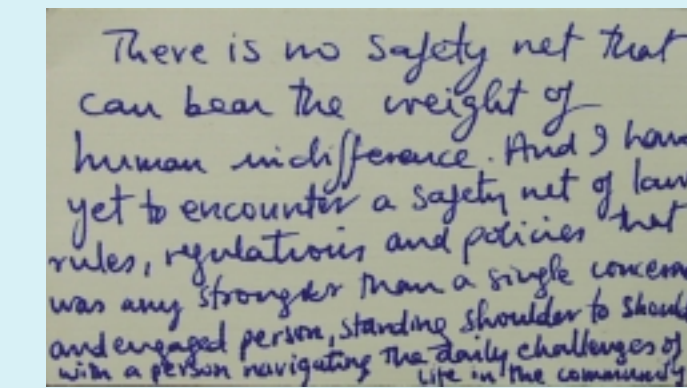 There is no safety net that
can bear the weight of
human indifference. And I have
yet to encounter a safety net of law
rules, regulations and policies that
was any stronger than a single concern
and engaged person, standing shoulder to should
with a person navigating the daily challenges of
life in the community